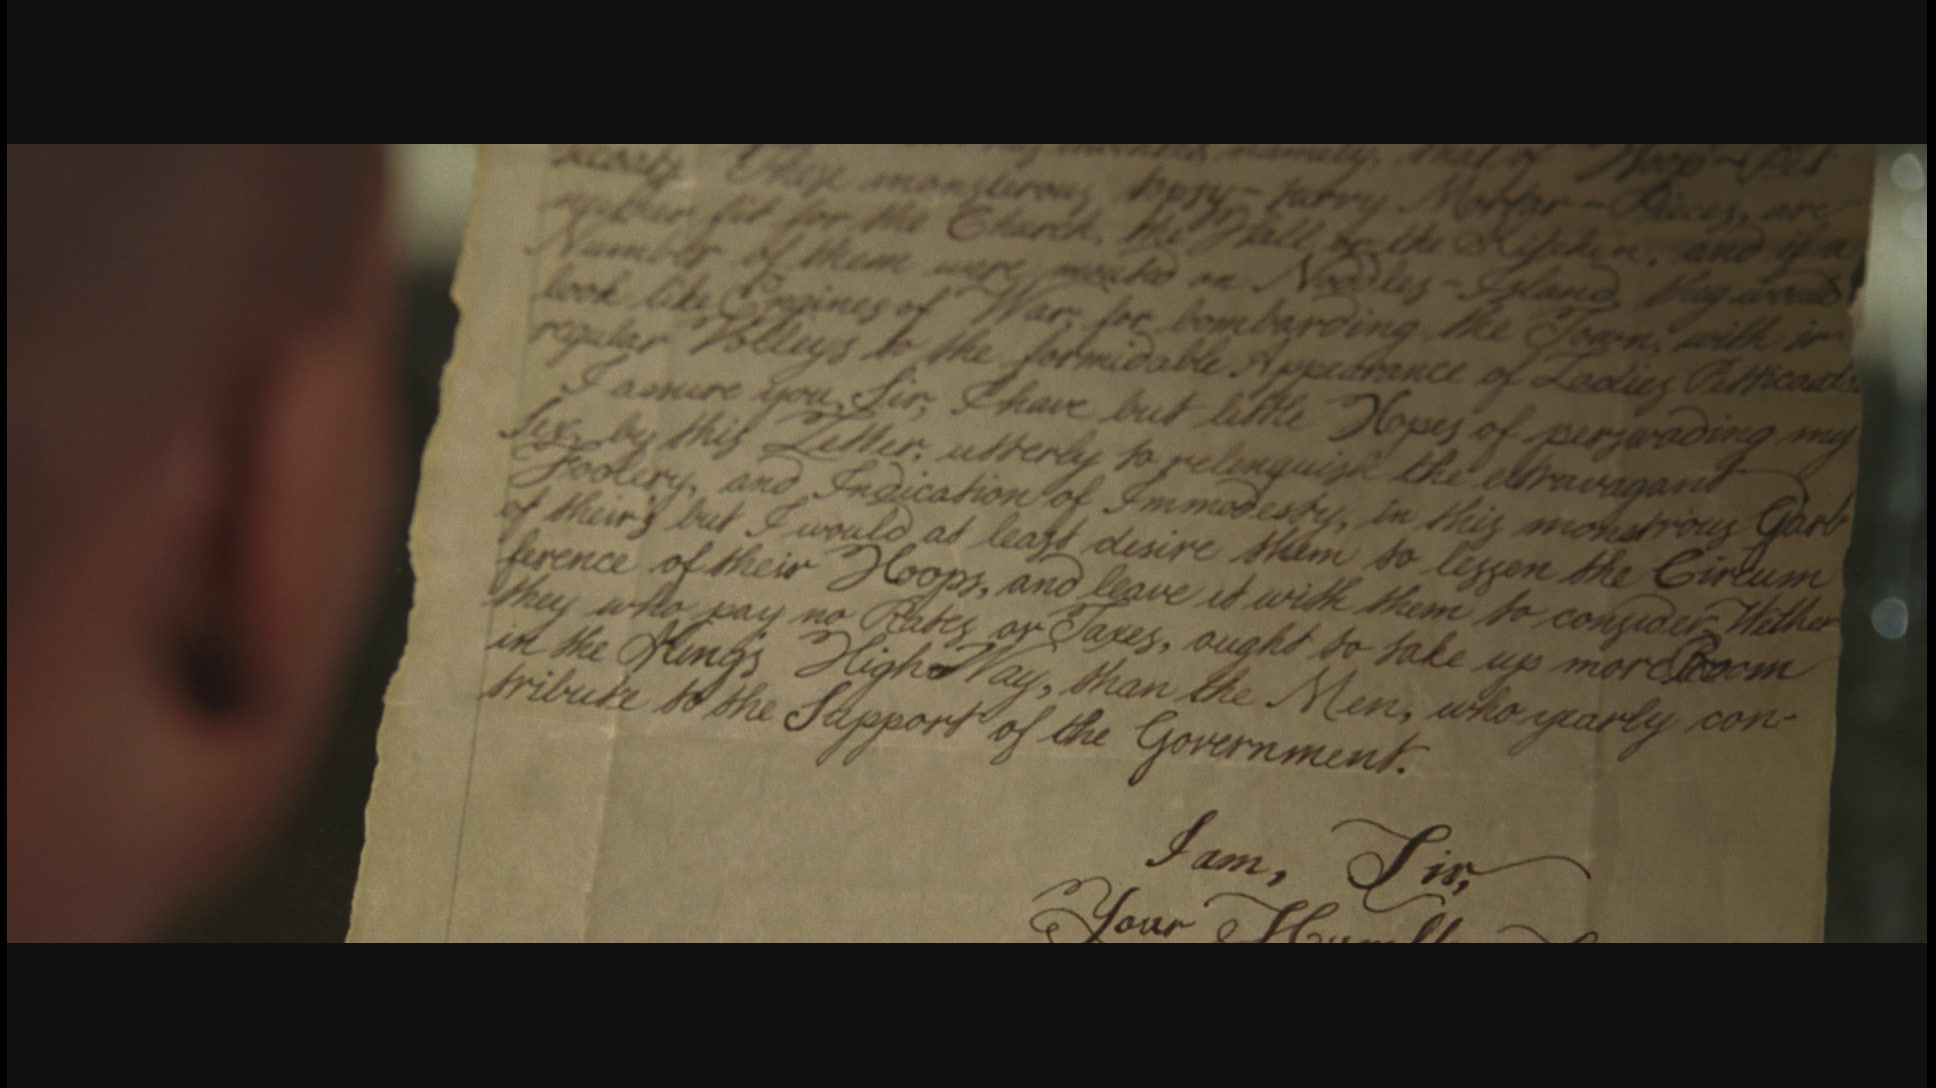 namely, that of Hoop-Pet-
ticoats. These monstrous topsy-turvy Mortar-Pieces, are
neither fit for the Church, the Hall, or the Kitchen, and if a
Number of them were mouted on Noddles-Island, they would
look like Engines of War, for bombarding the Town, with ir-
regular Volleys to the formidable Appearance of Ladies Petticoats.
I assure you, Sir, I have but little Hopes of perswading my
Sex, by this Letter, utterly to relenquish the extravagant
Foolery, and Indication of Immodesty, in this monstrous Garb
of their's but I would at least desire them to lessen the Circum
ference of their Hoops, and leave it with them to consider, Wither
they who pay no Rates or Taxes, ought to take up more Room
in the King's High-Way, than the Men, who yearly con-
tribute to the Support of the Government.
I am, Sir,
Your